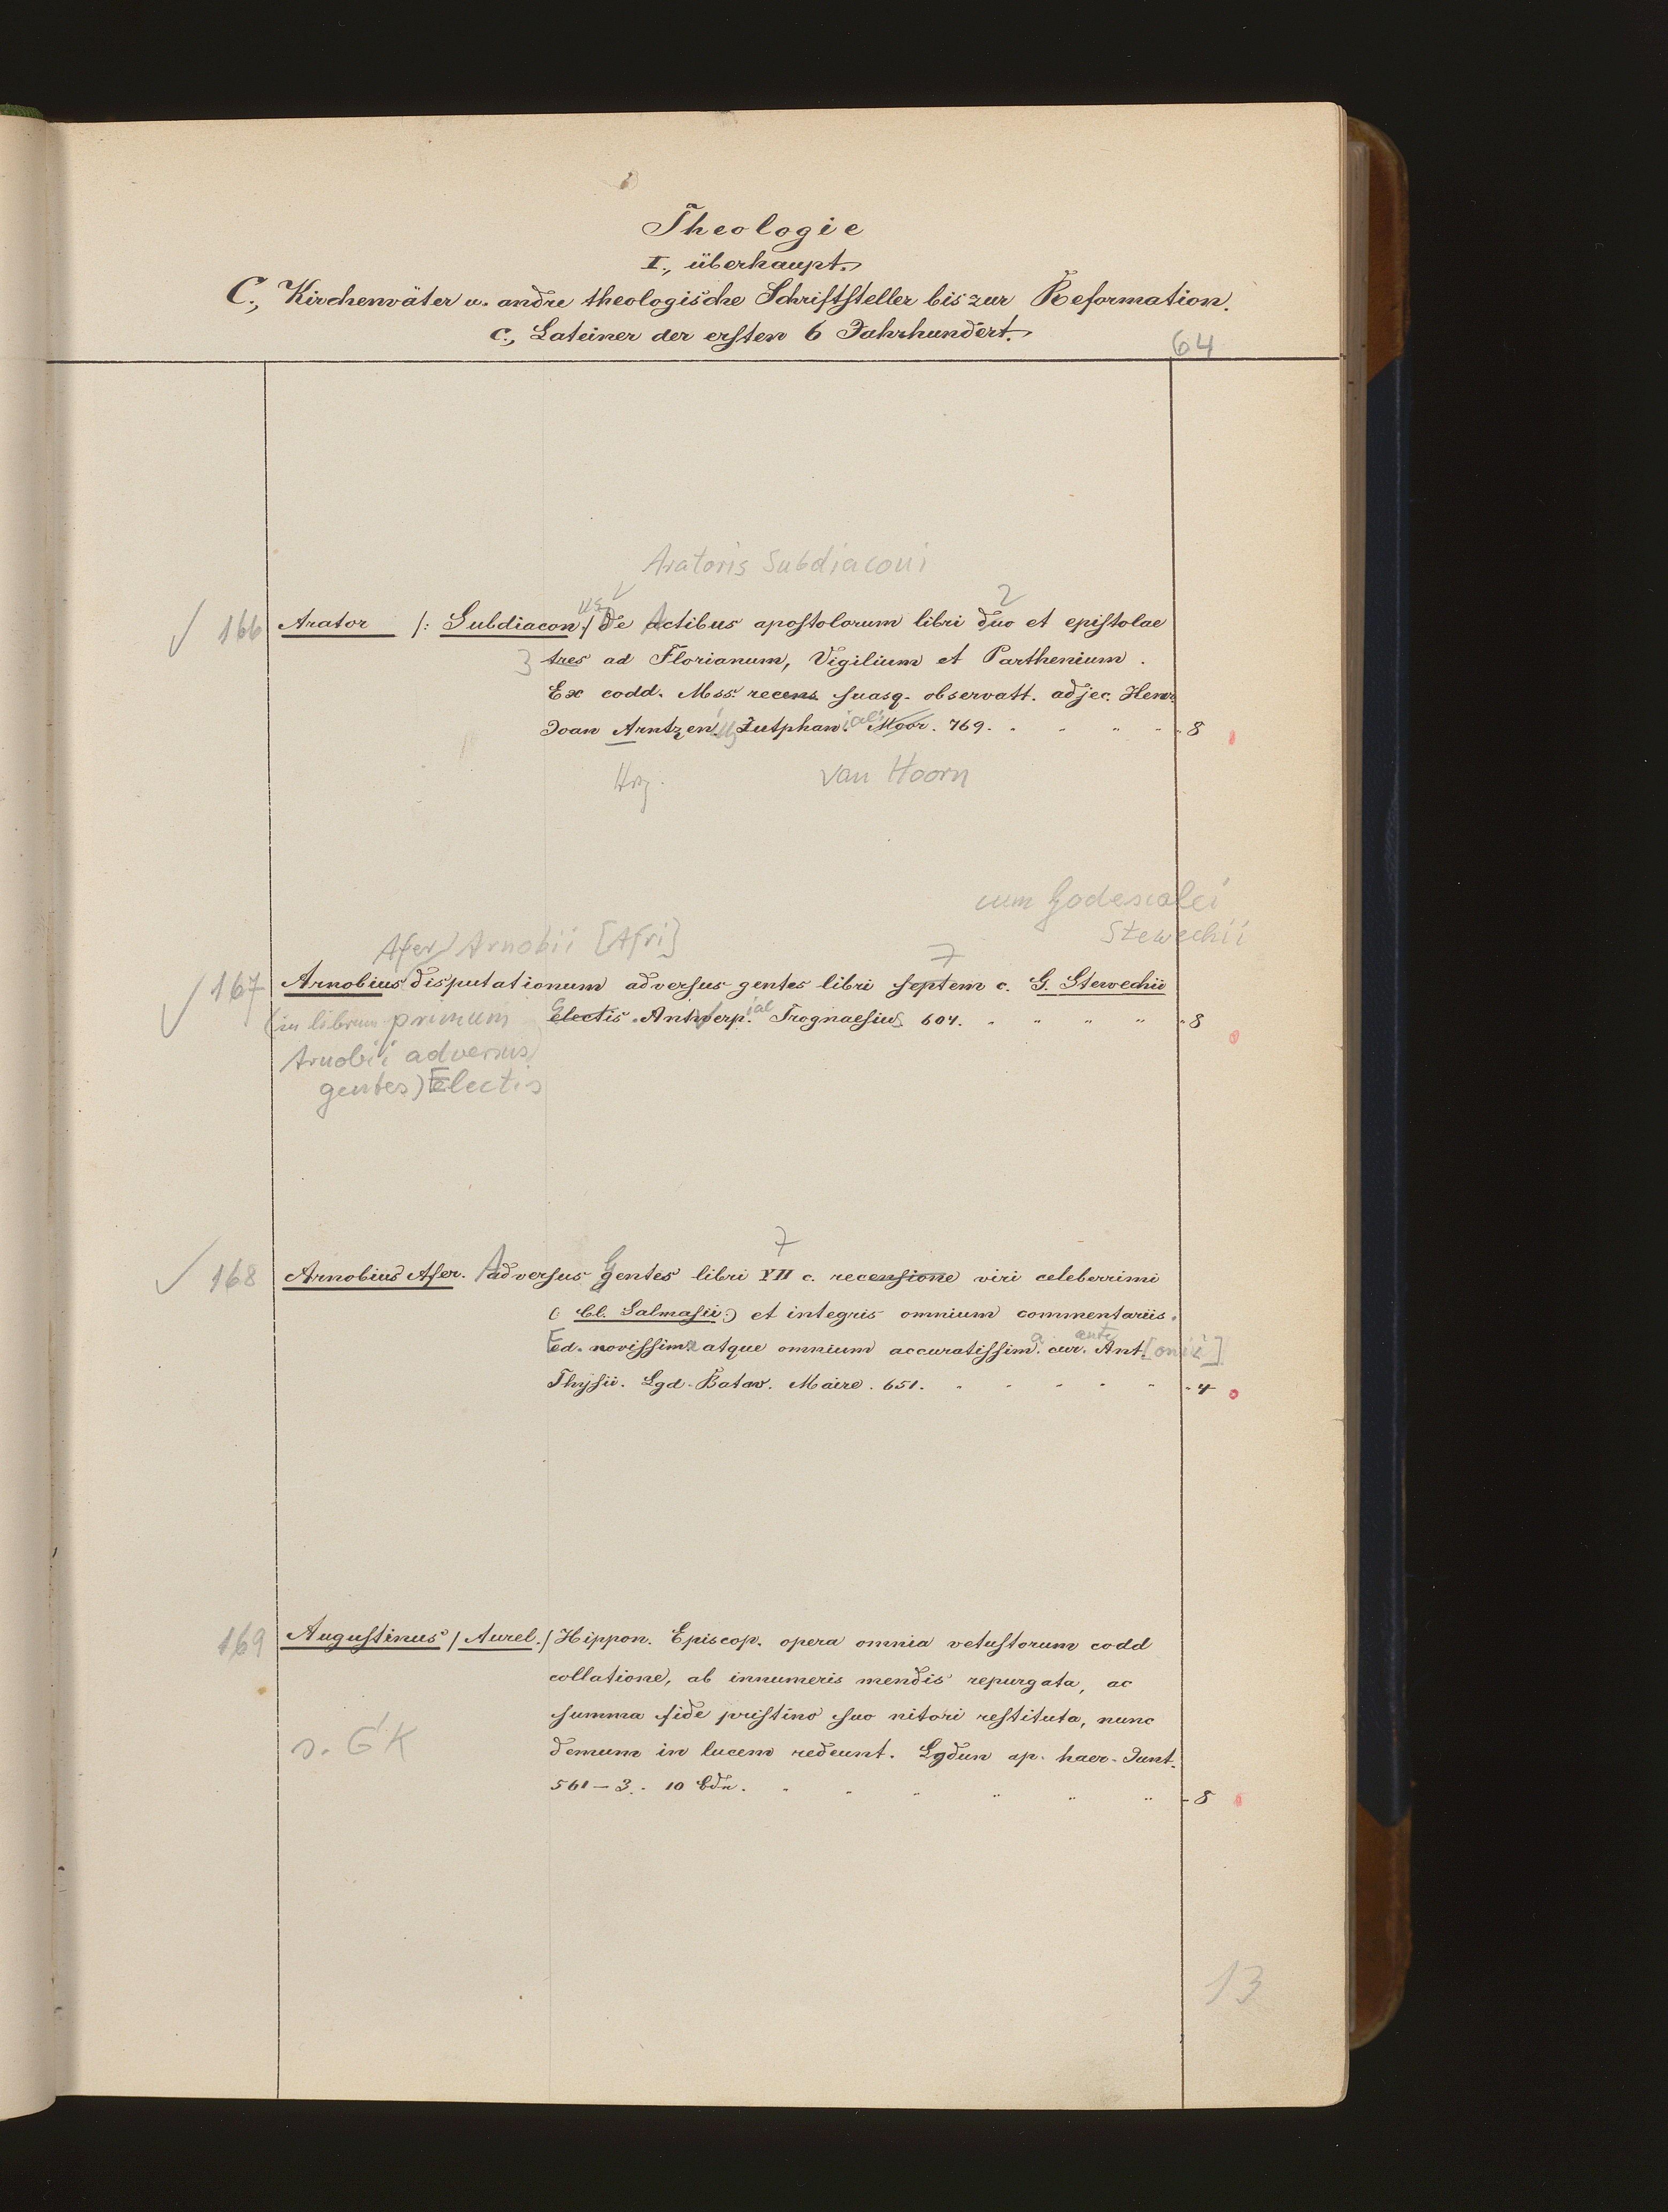 Theologie
I., überhaupt.
C., Kirchenväter u. andre theologische Schriftsteller bis zur Reformation.
c., Lateiner der ersten 6 Jahrhundert.
64
Aratoris Subdiaconi
us 2
166 Arator /: Subdiacon./ De Actibus apostolorum libri duo et epistolae
3 tres ad Florianum, Vigilium et Parthenium.
Ex codd. Mss. recens. suasq. observatt. adjec. Henr.
Joan Arntzen. Zutphan. Moor. 769. 8
Hrg. van Hoorn
cum Godescalci
Stewechii
Afer) Arnobii [Afri] 7
167 Arnobius disputationum adversus gentes libri septem c. G. Stewechii
(in librum primum Electis. Antwerp. Trognaesius 604. 8
Arnobii adversus
gentes) Electis
7
168 Arnobius Afer. Adversus Gentes libri VII c. recensione viri celeberrimi
(: Cl. Salmasii :) et integris omnium commentariis.
Ed. novissima atque omnium accuratissim. a. cur. ante Ant. [onii]
Thysii. Lgd. Batav. Maire. 651. 4
169 Augustinus / Aurel./ Hippon. Episcop. opera omnia vetustorum codd
collatione, ab innumeris mendis repurgata, ac
summa fide pristino suo nitori restituta, nunc
s. GK demum in lucem redeunt. Lgdun ap. haer. Junt.
561–3. 10 Bdn. 8
13